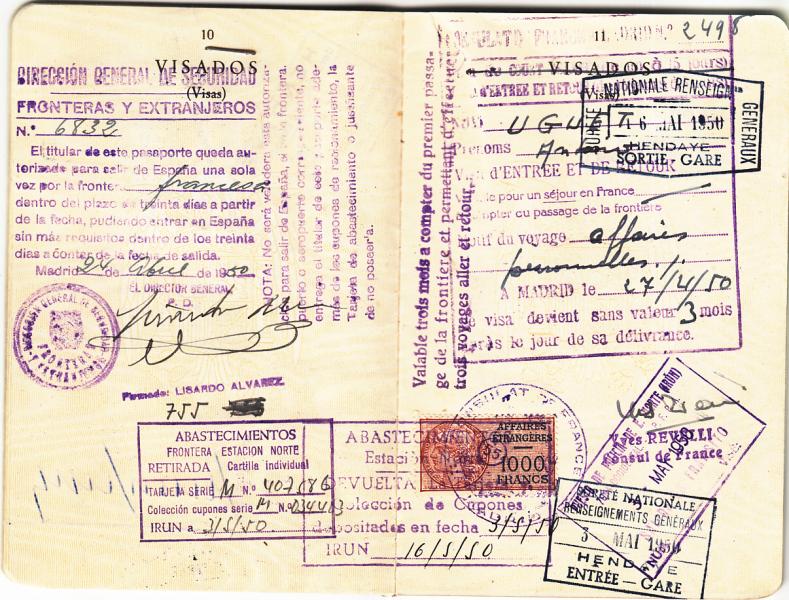 10
VISADOS
(Visas)
DIRECCIÓN GENERAL DE SEGURIDAD
FRONTERAS Y EXTRANJEROS
N.º 6832
El titular de este pasaporte queda au-
torizado para salir de España una sola
vez por la frontera francesa
dentro del plazo de treinta días a partir
de la fecha, pudiendo entrar en España
sin más requisitos dentro de los treinta
días a contar de la fecha de salida.
Madrid 24 de Abril de 1950
EL DIRECTOR GENERAL
P. D.
DIRECCION GENERAL DE SEGURIDAD
FRONTERAS
Firmado: LISARDO ALVAREZ
755
NOTA: No será valedera esta autoriza-
ción para salir de España, si en la frontera,
puerto o aeropuerto correspondiente, no
entrega el titular de este pasaporte ade-
más de los cupones de racionamiento, la
Tarjeta de abastecimiento o justificante
de no poseerla.
ABASTECIMIENTOS
FRONTERA ESTACION NORTE
RETIRADA Cartilla individual
TARJETA SERIE M N.º 407686
Colección cupones serie M N.º
IRUN a 3/5/50.
ABASTECIMIEN
Estación
DEVUELTA
Colección de Cupones
depositados en fecha 3/5/50
IRUN 16/5/50
11
VISADOS
CONSULATO MADRID N.º 2498
D'ENTREE ET RETOUR
UGUET
Prénoms Antonio
Visa D'ENTRÉE ET DE RETOUR
pour un séjour en France
compter du passage de la frontière
Motif du voyage affaires
personnelles
A MADRID le 27/4/50
Ce visa devient sans valeur 3 mois
après le jour de sa délivrance.
Valable trois mois a compter du premier passa-
ge de la frontiere et permettant d'effectuer
trois voyages aller et retour.
NATIONALE RENSEIGN
GENERAUX
16 MAI 1950
HENDAYE
SORTIE - GARE
CONSULAT DE FRANCE
AFFAIRES
ÉTRANGÈRES
1000
FRANCS
Yves REVELLI
Consul de France
MAYO 1950
SURETÉ NATIONALE
RENSEIGNEMENTS GÉNÉRAUX
3 MAI 1950
HENDAYE
ENTRÉE - GARE